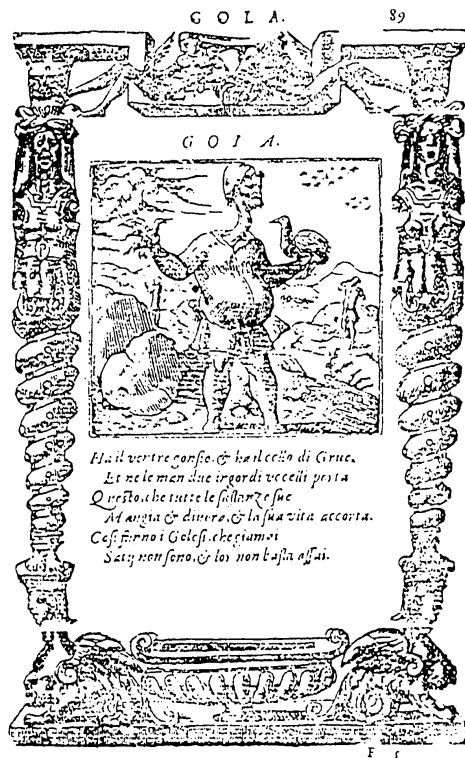 GOLA.
89
GOLA.
Ha il ventre gonfio, & ha il collo di Grue,
Et ne le man due ingordi uccelli porta
Questo, che tutte le sostanze sue
Mangia & divora, & la sua vita accorta.
Cosi fanno i Golosi, che giamai
Satij non sono, & lor non basta assai.
F 5